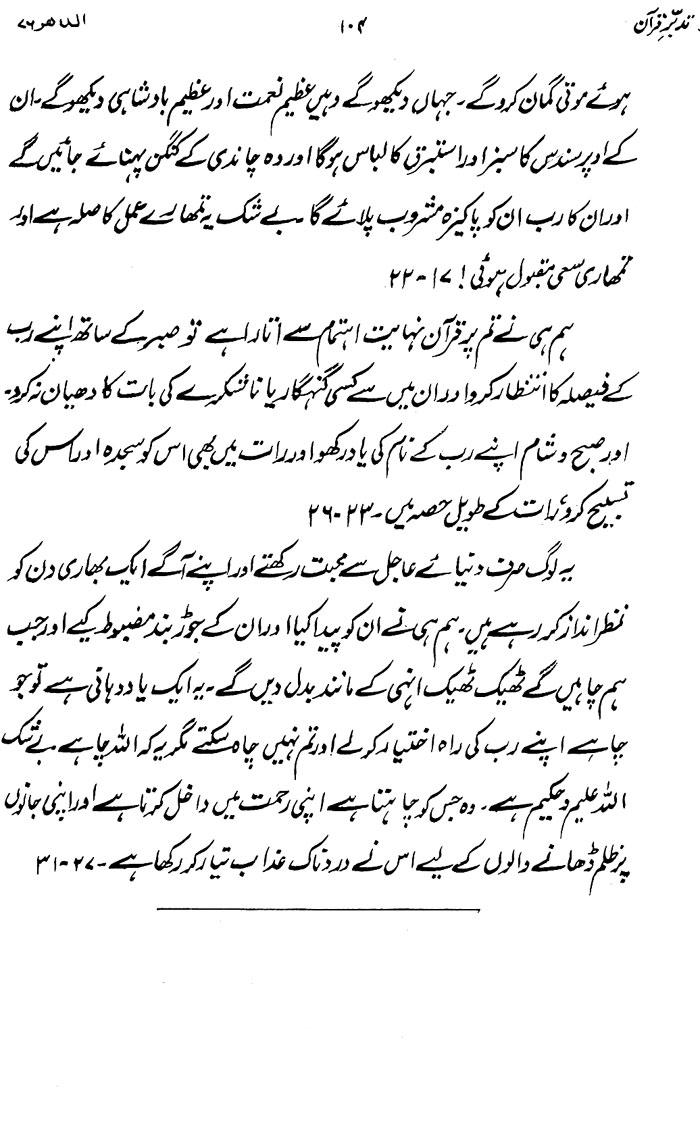 تدبّرِ قرآن ۱۰۴ الدھر ۷۶
ہوئے موتی گمان کرو گے۔ جہاں دیکھو گے وہیں عظیم نعمت اور عظیم بادشاہی دیکھو گے۔ ان
کے اوپر سندس کا سبز اور استبرق کا لباس ہوگا اور وہ چاندی کے کنگن پہنائے جائیں گے
اور ان کا رب ان کو پاکیزہ مشروب پلائے گا۔ بے شک یہ تمھارے عمل کا صلہ ہے اور
تمھاری سعی مقبول ہوئی! ۱۷-۲۲
ہم ہی نے تم پر قرآن نہایت اہتمام سے اتارا ہے تو صبر کے ساتھ اپنے رب
کے فیصلہ کا انتظار کرو اور ان میں سے کسی گنہگار یا ناشکرے کی بات کا دھیان نہ کرو۔
اور صبح و شام اپنے رب کے نام کی یاد رکھو اور رات میں بھی اس کو سجدہ اور اس کی
تسبیح کرو، رات کے طویل حصہ میں۔ ۲۳-۲۶
یہ لوگ صرف دنیائے عاجل سے محبت رکھتے اور اپنے آگے ایک بھاری دن کو
نظر انداز کر رہے ہیں۔ ہم ہی نے ان کو پیدا کیا اور ان کے جوڑ بند مضبوط کیے اور جب
ہم چاہیں گے ٹھیک ٹھیک انہی کے مانند بدل دیں گے۔ یہ ایک یاددہانی ہے تو جو
چاہے اپنے رب کی راہ اختیار کرلے اور تم نہیں چاہ سکتے مگر یہ کہ اللہ چاہے۔ بے شک
اللہ علیم و حکیم ہے۔ وہ جس کو چاہتا ہے اپنی رحمت میں داخل کرتا ہے اور اپنی جانوں
پر ظلم ڈھانے والوں کے لیے اس نے دردناک عذاب تیار کر رکھا ہے۔ ۲۷-۳۱